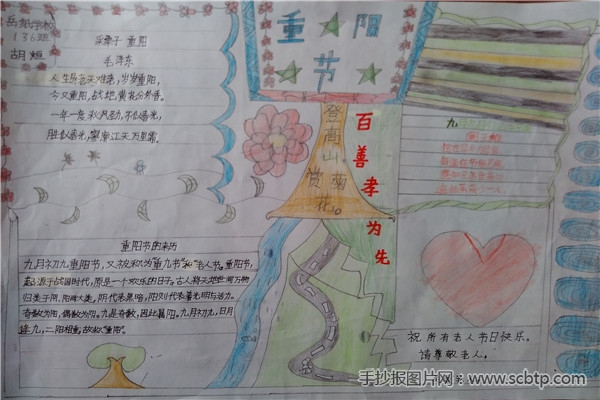 岳纸学校
136班
胡烜
采桑子 重阳
毛泽东
人生易老天难老,岁岁重阳,
今又重阳,战地黄花分外香。
一年一度秋风劲,不似春光,
胜似春光,寥廓江天万里霜。
重阳
节
登高山,赏菊花。
百善孝为先
九
独在异乡为异客
每逢佳节倍思亲
遥知兄弟登高处
遍插茱萸少一人
重阳节的来历
九月初九重阳节,又被称为"重九节"和"老人节"。重阳节,
起源于战国时代,原是一个欢乐的日子。古人将天地世间万物
归类于阴、阳两大类,阴代表黑暗,阳则代表着光明与活力。
奇数为阳,偶数为阴。九是奇数,因此属阳。九月初九,日月
逢九,二阳相重,故称"重阳"。
祝所有老人节日快乐。
请尊敬老人。
手抄报图片网-www.scbtp.com